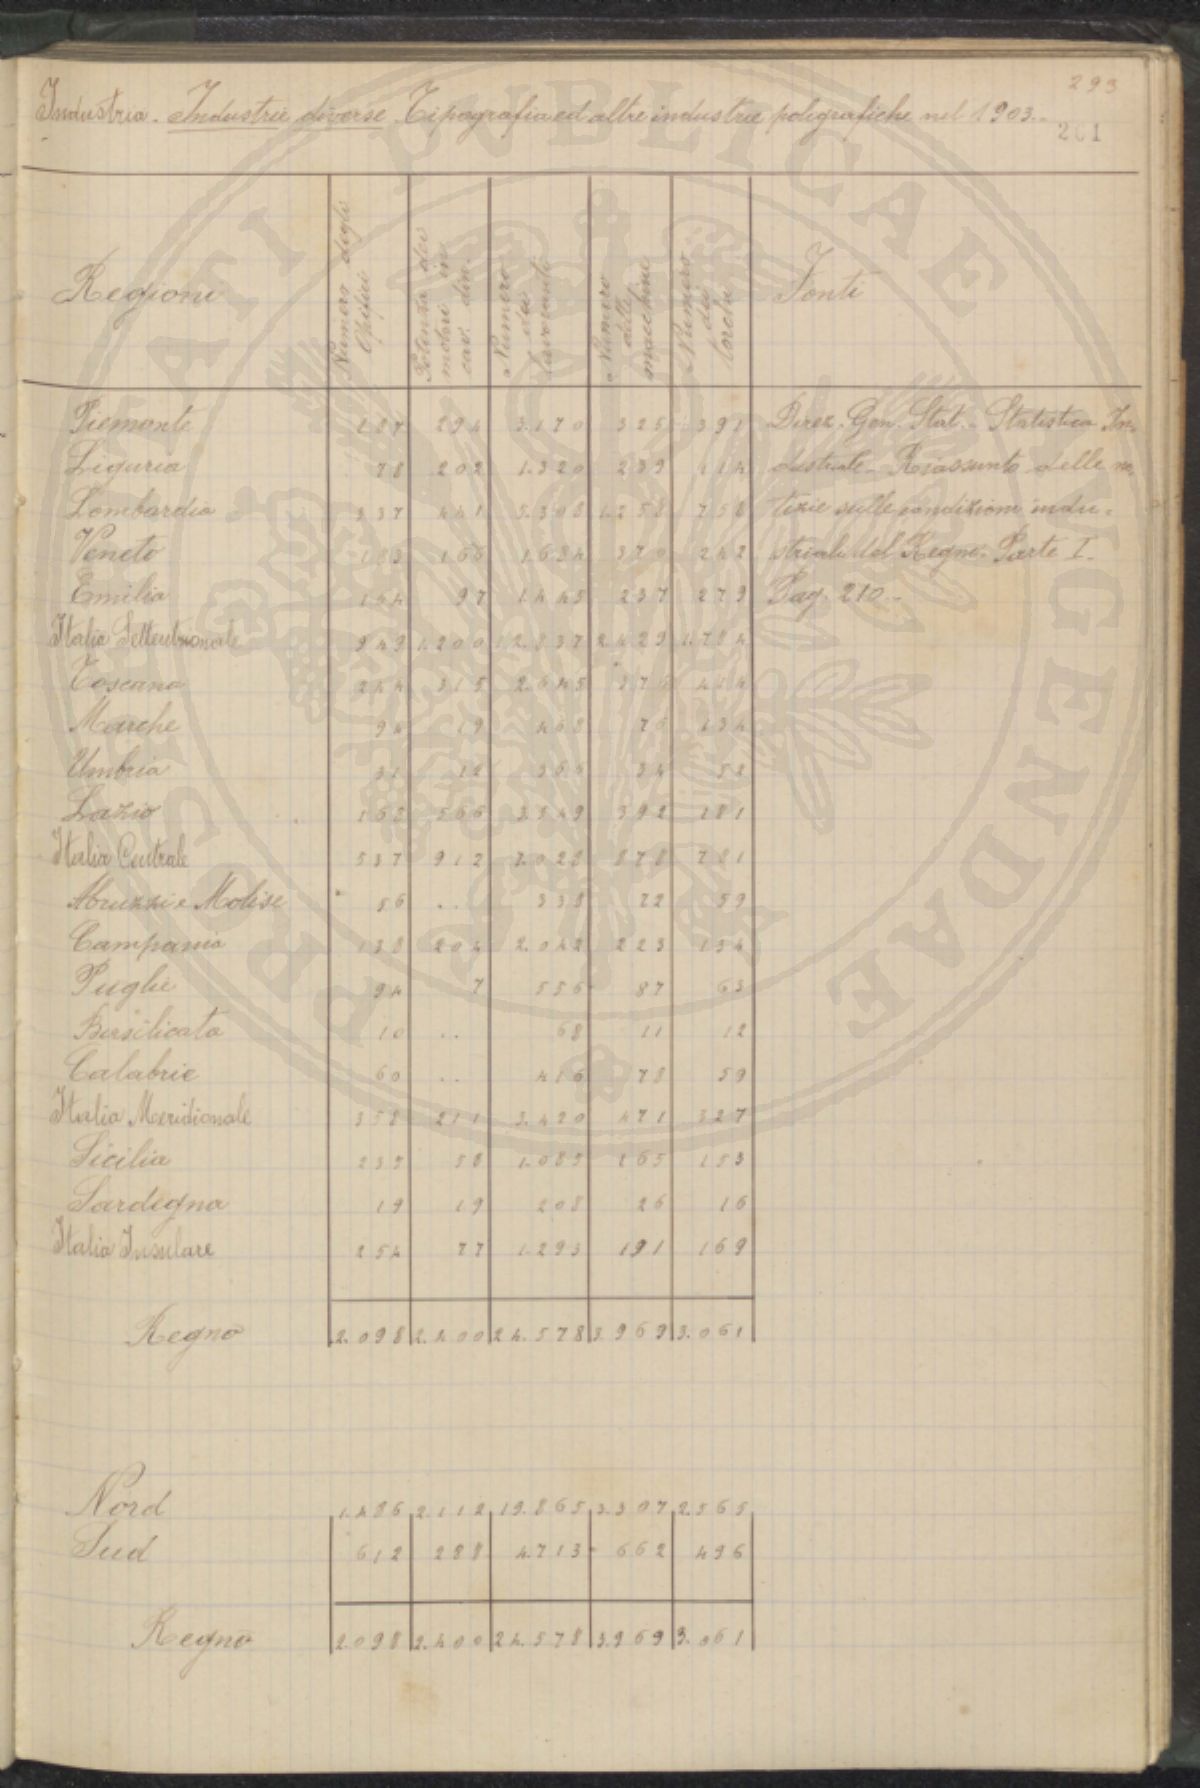 293
Industria. Industrie diverse. Tipografia ed altre industrie poligrafiche nel 1903.
261
Regioni | Numero degli Opifici | Potenza dei motori in cav. din. | Numero dei lavoranti | Numero delle macchine | Numero dei torchi | Fonti
Piemonte 187 294 3.170 325 391 Direz. Gen. Stat. Statistica In-
Liguria 78 202 1.320 239 114 dustriale - Riassunto delle no-
Lombardia 337 441 5.308 1.258 758 tizie sulle condizioni indu-
Veneto 183 166 370 242 striali del Regno. Parte I.
Emilia 164 97 1.445 237 279 Pag. 210.
Italia Settentrionale 949 1.200 12.837 2.429 1.784
Toscana 244 315 2.645 376 414
Marche 94 19 468 76 134
Umbria 31 12 366 34 52
Lazio 168 566 3.549 392 181
Italia Centrale 537 912 7.028 878 781
Abruzzi e Molise 56 .. 338 72 59
Campania 138 204 2.042 223 134
Puglie 94 7 556 87 63
Basilicata 10 .. 68 11 12
Calabrie 60 .. 416 78 59
Italia Meridionale 358 211 3.420 471 327
Sicilia 235 58 1.085 165 153
Sardegna 19 19 208 26 16
Italia Insulare 254 77 1.293 191 169
Regno 2.098 2.400 24.578 3.969 3.061
Nord 1.486 2.112 19.865 3.307 2.565
Sud 612 288 4.713 662 496
Regno 2.098 2.400 24.578 3.969 3.061
PROSPERITATI PUBLICAE AVGENDAE